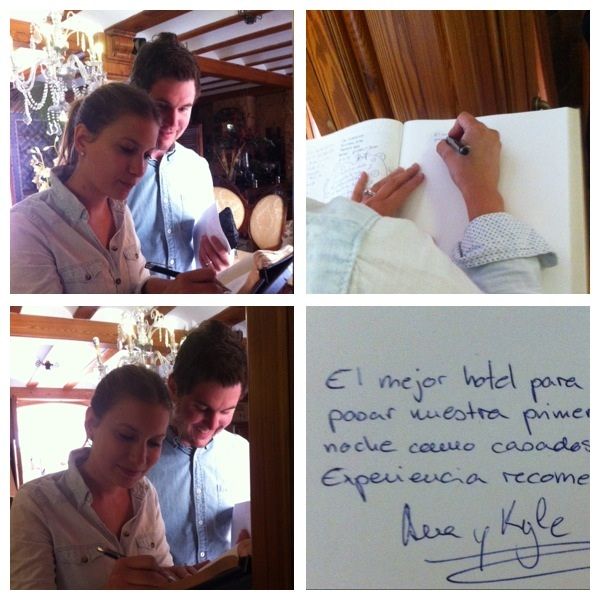 El mejor hotel para
pasar nuestra primer
noche como casados
Experiencia recome
Ana y Kyle